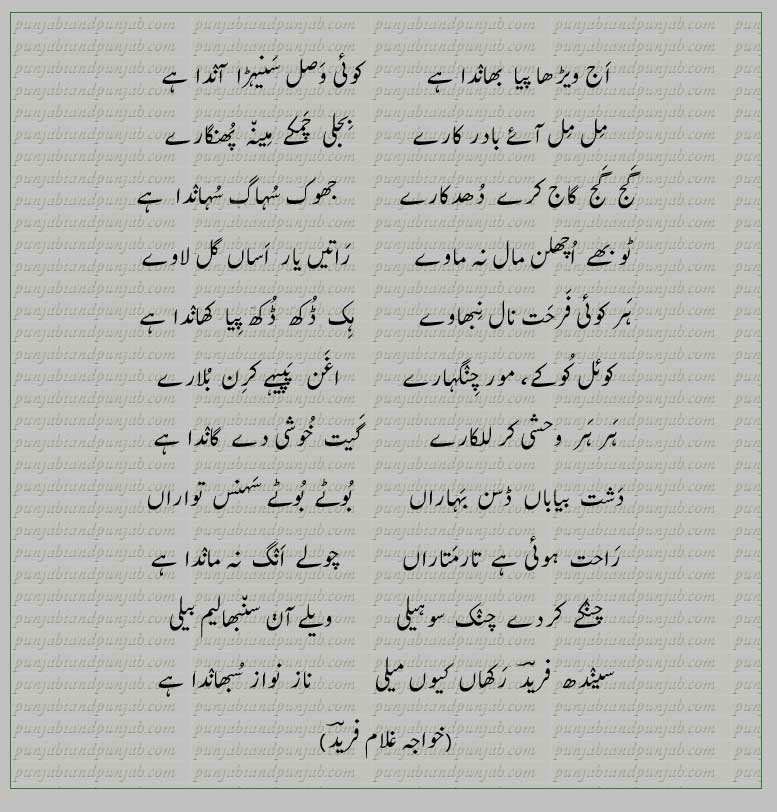 اَج ویڑھا پیا بھانٛدا ہے کوئی وَصل سَنیہڑا آنٛدا ہے
مِل مِل آئے بادر کارے بِجلی چَمکے مِینہّ پُھنگارے
گَج گَج گاج کرے دُھدکارے جھوک سُہاگ سُہانٛدا ہے
ٹوبھے اُچھلن مال نہ ماوے رَاتیں یار اَساں گل لاوے
ہَر کوئی فَرحَت نال نِبھاوے ہِک ڈُکھ ڈُکھ پِیا کھانٛدا ہے
کوئل کُوکے، مور چِنٛگہارے اغَن پَپیہے کرِن بُلارے
ہَر ہَر وحشی کر للکارے گَیت خُوشی دے گانٛدا ہے
دَشت بیاباں ڈسن بَہاراں بُوٹے بُوٹے سَہنس تواراں
رَاحت ہوئی ہے تار مَتاراں چولے اَنٛگ نہ مانٛدا ہے
چنٛکے کردے چنٛک سوہیلی ویلے آن سنّبھالیم بیلی
سینٛدھ فریدؔ رَکھاں کیوں میلی ناز نواز سُبھانٛدا ہے
(خواجہ غلام فریدؔ)